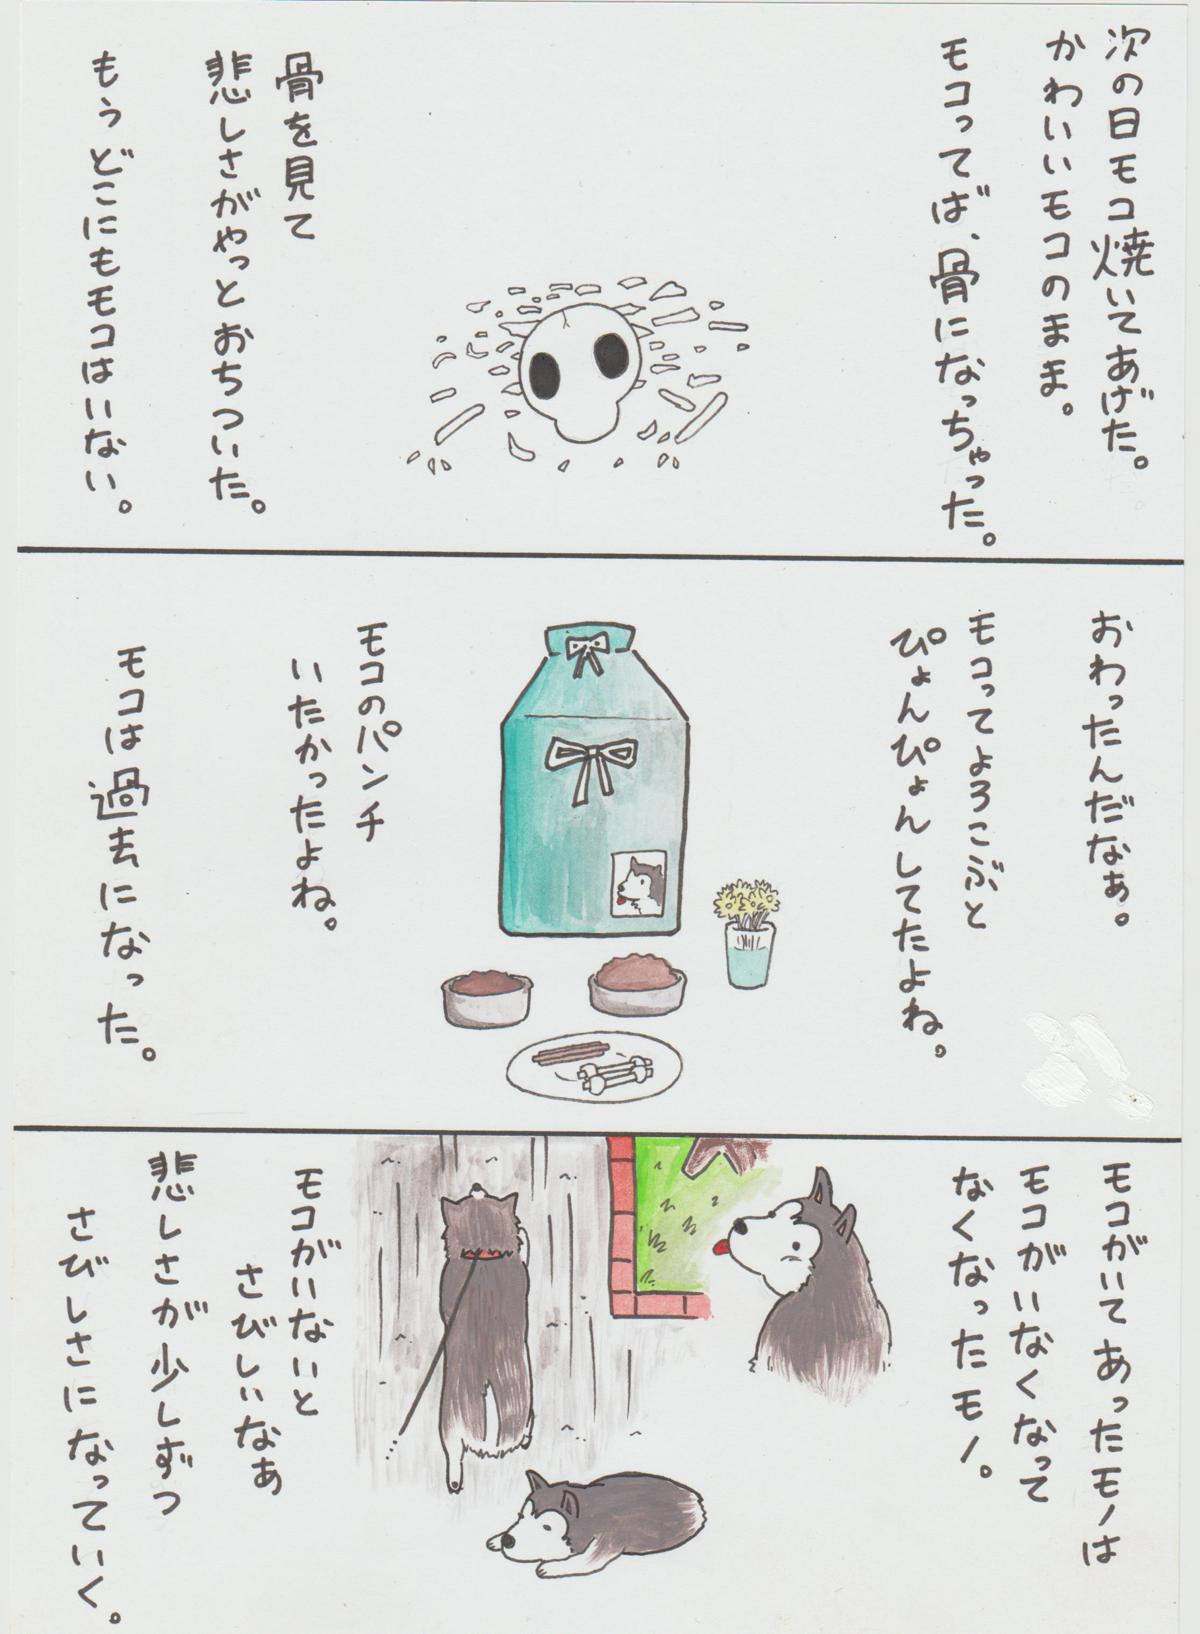 次の日モコ焼いてあげた。
かわいいモコのまま。
モコってば、骨になっちゃった。
骨を見て
悲しさがやっとおちついた。
もうどこにもモコはいない。
おわったんだなぁ。
モコってよろこぶと
ぴょんぴょんしてたよね。
モコのパンチ
いたかったよね。
モコは過去になった。
モコがいてあったモノは
モコがいなくなって
なくなったモノ。
モコがいないと
さびしいなぁ
悲しさが少しずつ
さびしさになっていく。